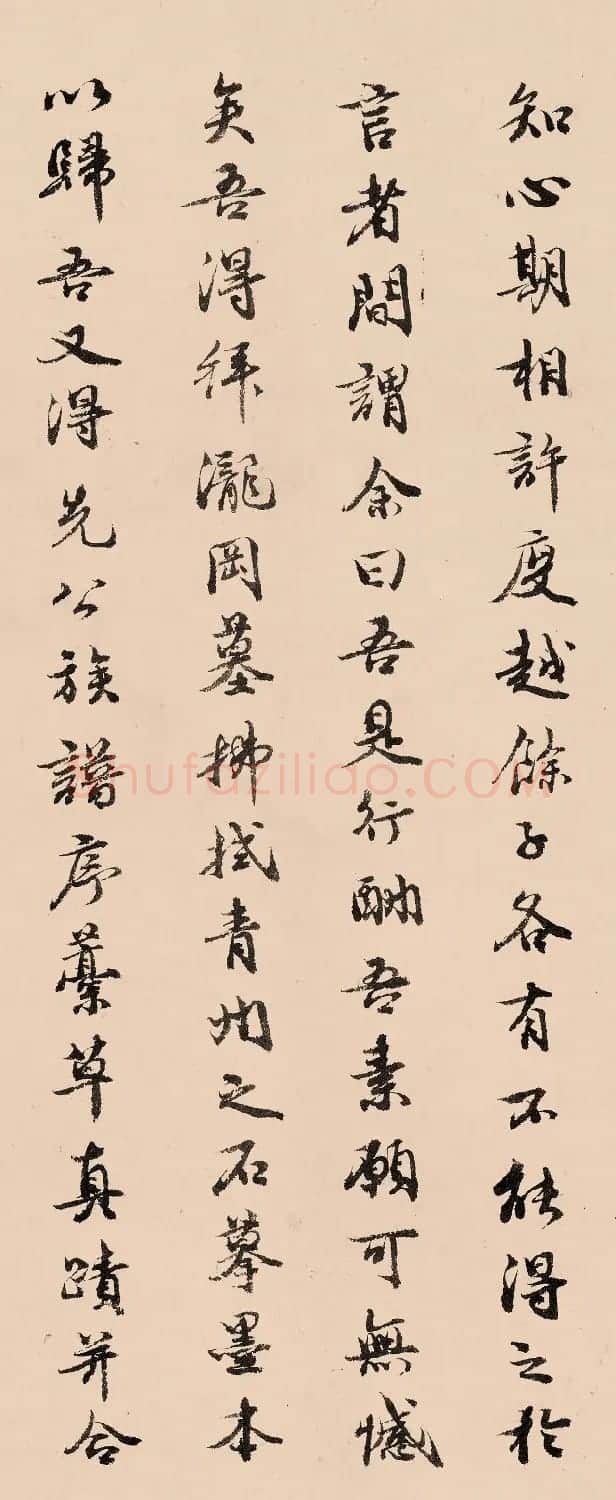 知心期相許度越餘子各有不能得之於
言者間謂余曰吾是行酬吾素願可無憾
矣吾得拜瀧岡墓拂拭青州之石摹墨本
以歸吾又得先公族譜序藁草真蹟并合
shufaziliao.COM